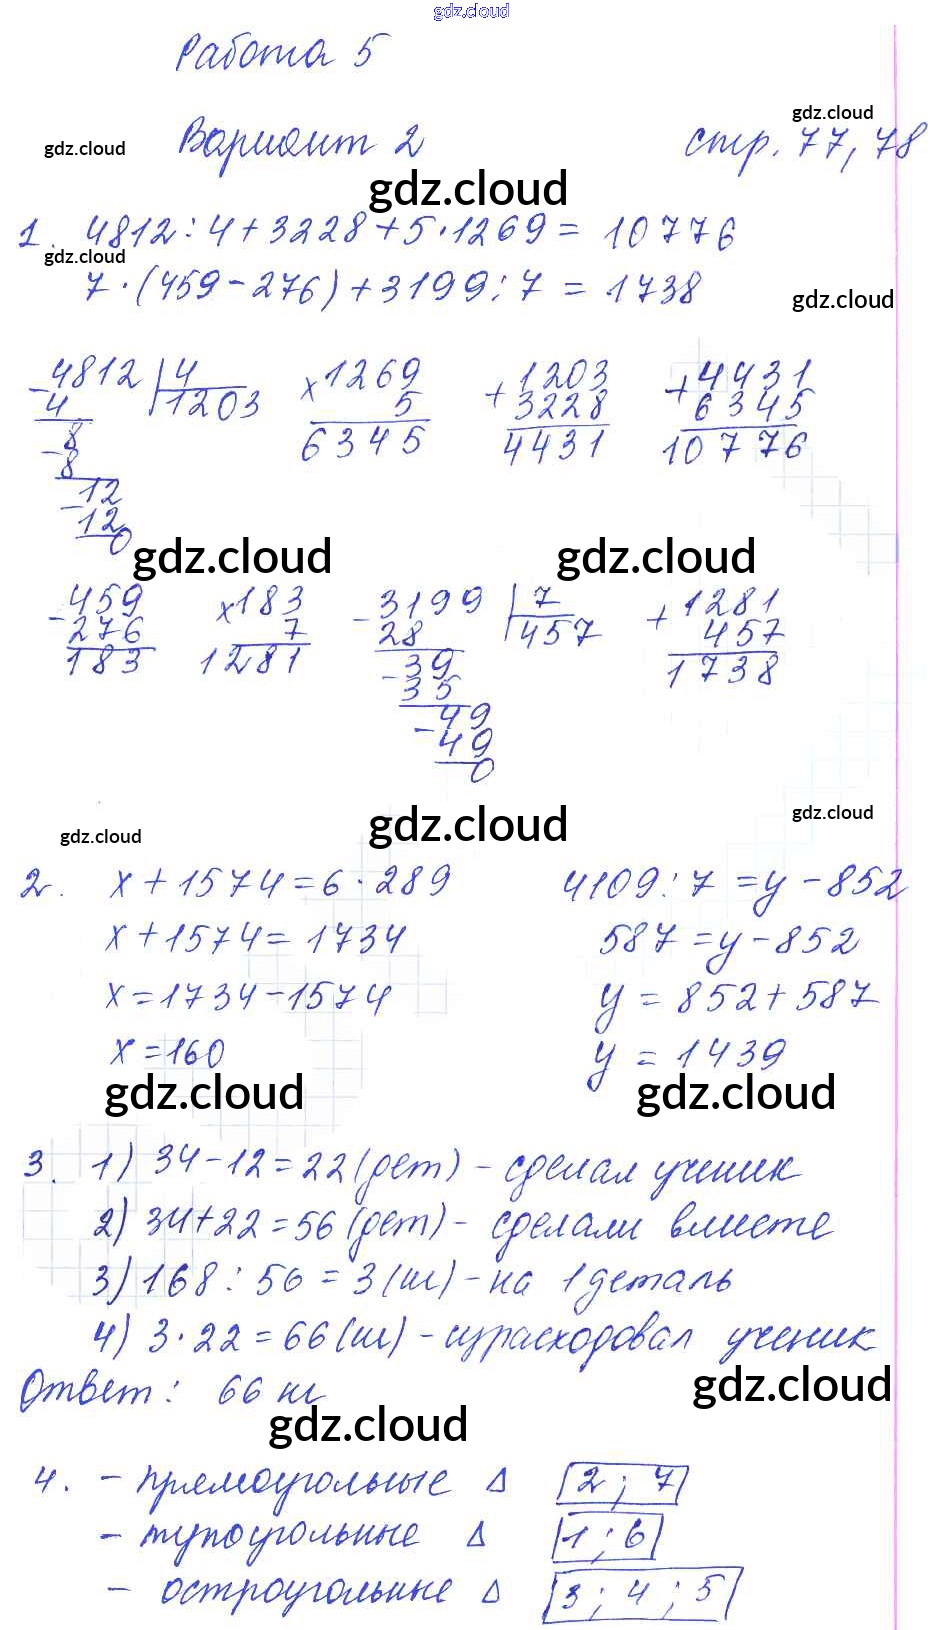 gdz.cloud
Работа 5
gdz.cloud
gdz.cloud Вариант 2 стр. 77, 78
gdz.cloud
1. 4812 : 4 + 3228 + 5 · 1269 = 10776
gdz.cloud
7 · (459 - 276) + 3199 : 7 = 1738
gdz.cloud
- 4812 | 4 × 1269 + 1203 + 4431
4 1203 5 3228 6345
- 8 6345 4431 10776
8
- 12
12
0
gdz.cloud gdz.cloud
- 459 × 183 - 3199 | 7 + 1281
276 7 28 457 457
183 1281 - 39 1738
35
- 49
49
0
gdz.cloud gdz.cloud gdz.cloud
2. x + 1574 = 6 · 289 4109 : 7 = y - 852
x + 1574 = 1734 587 = y - 852
x = 1734 - 1574 y = 852 + 587
x = 160 y = 1439
gdz.cloud gdz.cloud
3. 1) 34 - 12 = 22 (дет) - сделал ученик
2) 34 + 22 = 56 (дет) - сделали вместе
3) 168 : 56 = 3 (кг) - на 1 деталь
4) 3 · 22 = 66 (кг) - израсходовал ученик
gdz.cloud
Ответ: 66 кг
gdz.cloud
4. - прямоугольные Δ 2 ; 7
- тупоугольные Δ 1 ; 6
- остроугольные Δ 3 ; 4 ; 5